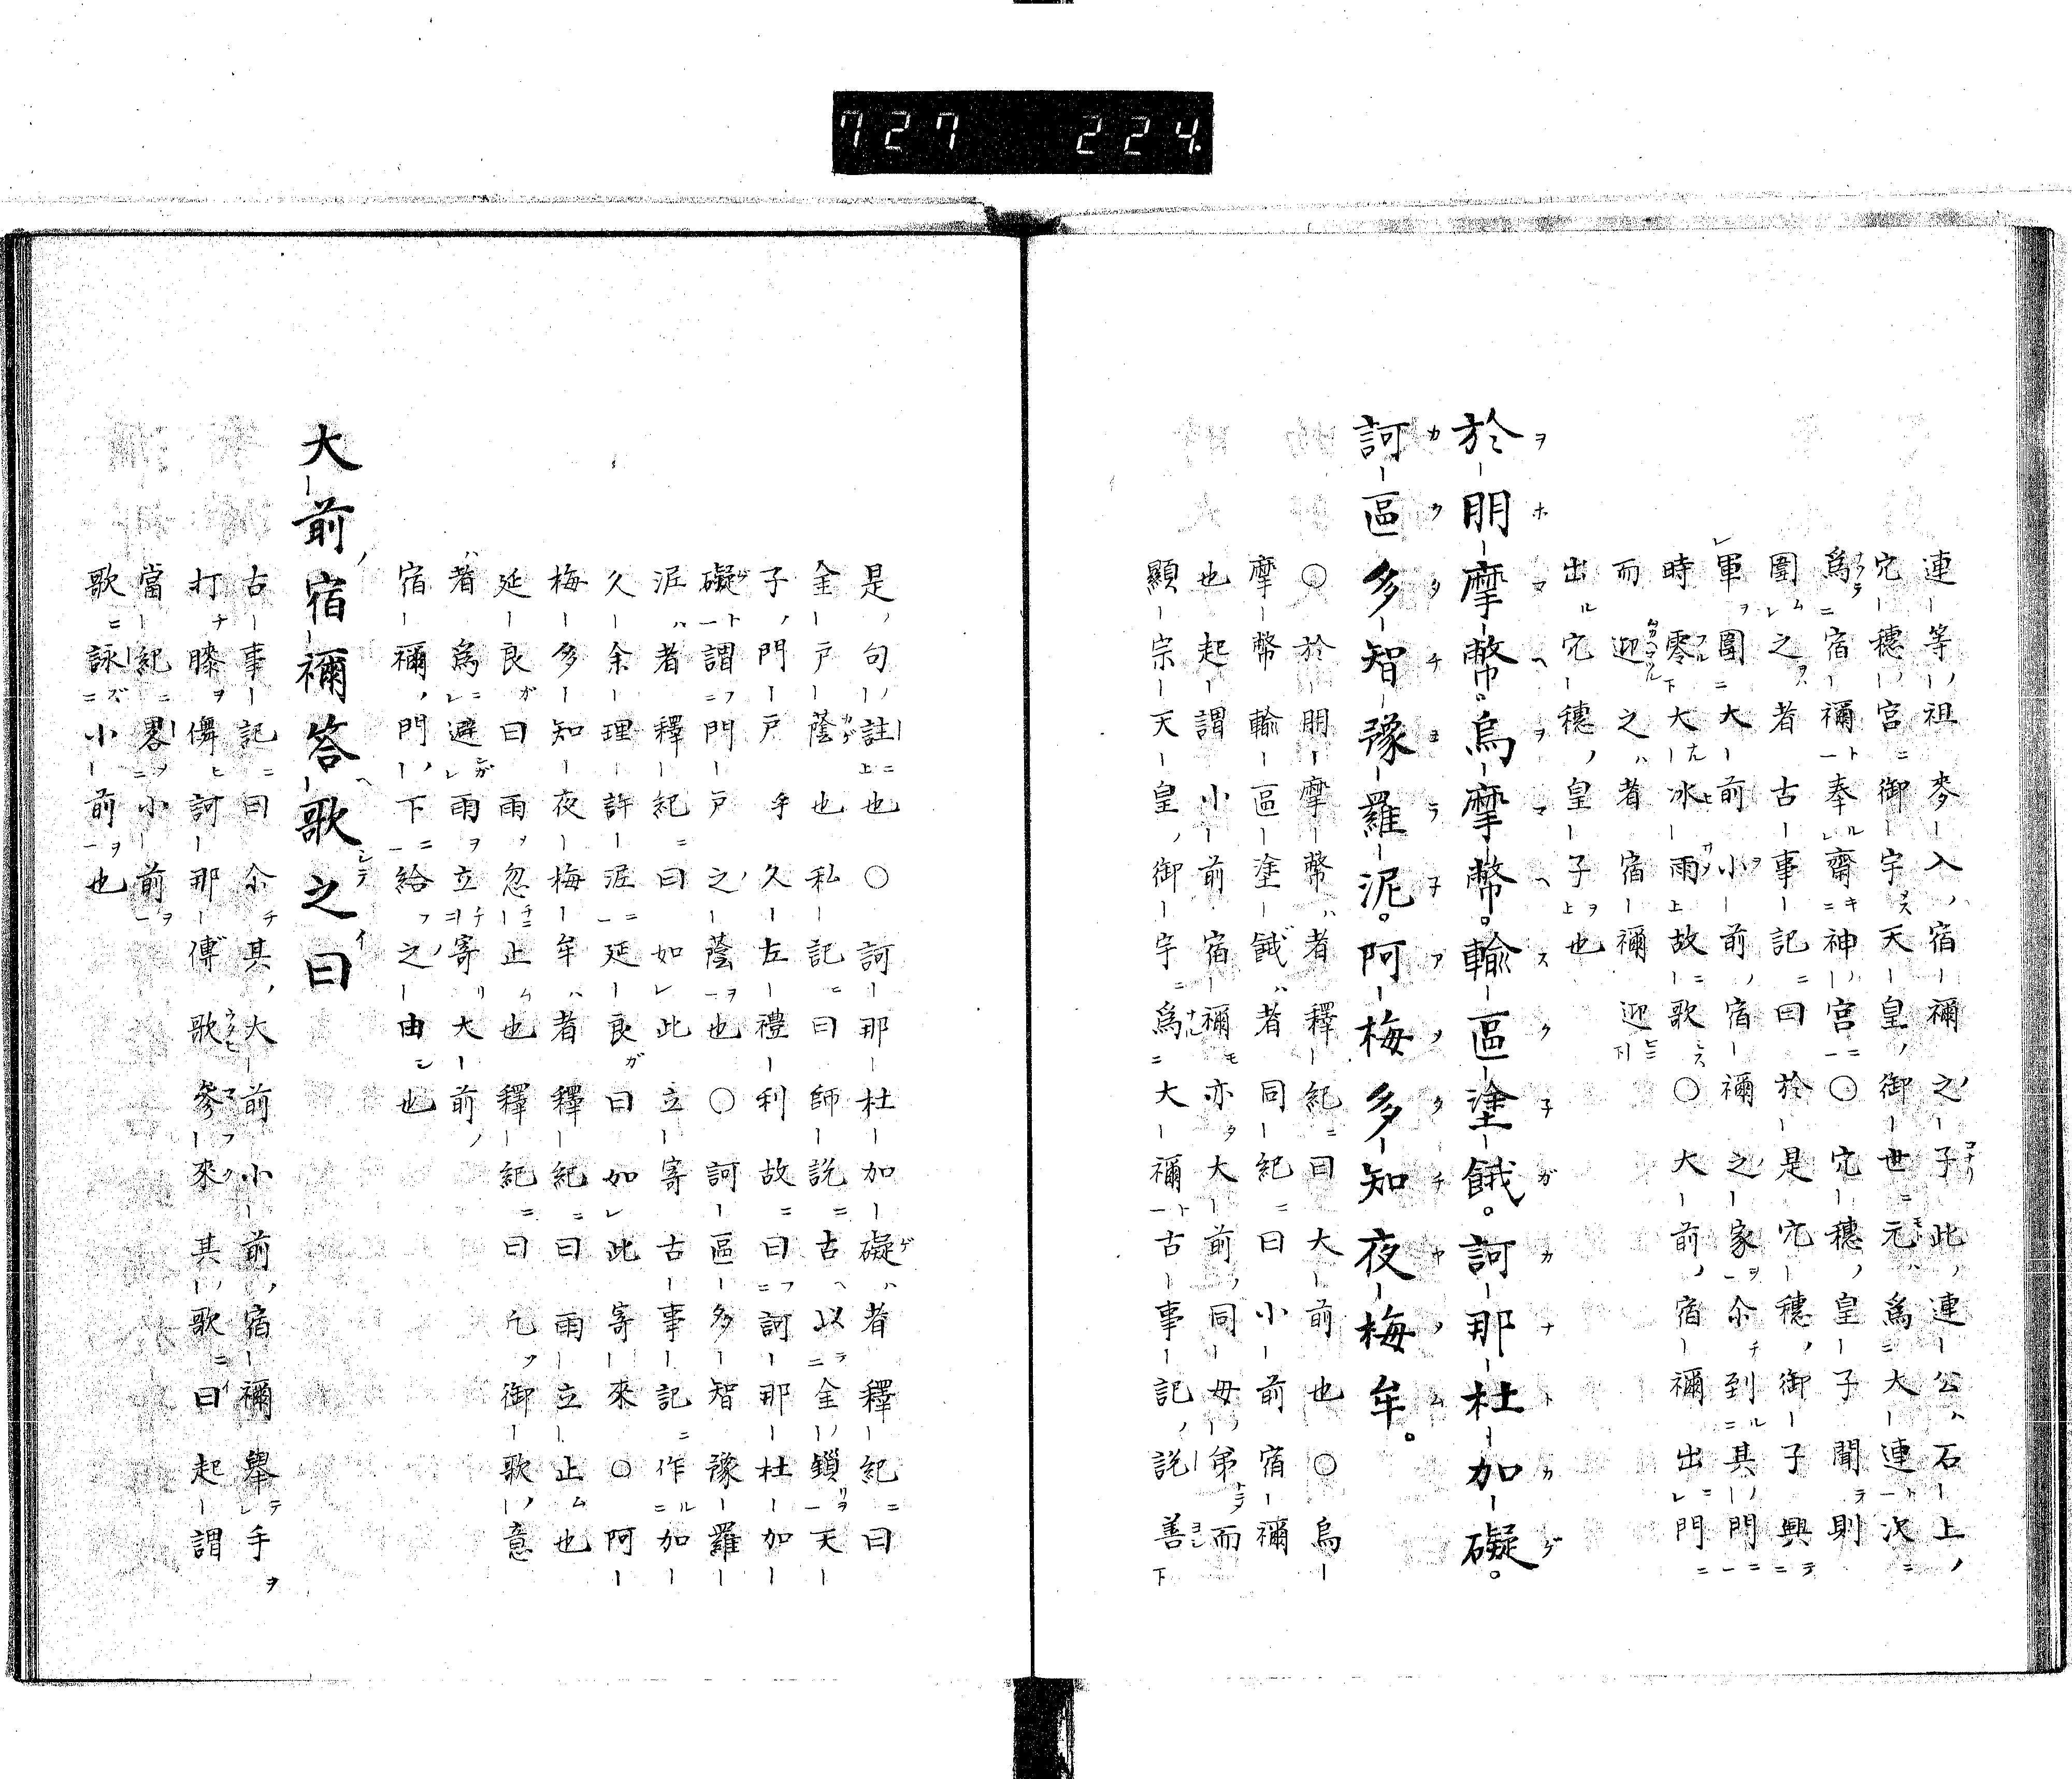 727 224.
連等祖麥入宿禰之子此連公石上
宂穗宮御宇天皇御世元爲大連次
爲宿禰奉齋神宮○宂穗皇子聞則
圍之者古事記曰於是宂穗御子興
軍圍大前小前宿禰之家尒到其門
時零大冰雨故歌○大前宿禰出門
而迎之者宿禰迎
出宂穗皇子也
於朋摩幣烏摩幣輸區塗餓訶那杜加礙
訶區多智豫羅泥阿梅多知夜梅牟
○於朋摩幣者釋紀曰大前也○烏
摩幣輸區塗餓者同紀曰小前宿禰
也起謂小前宿禰亦大前同母弟而
顯宗天皇御宇爲大禰古事記説善
是句註也○訶那杜加礙者釋紀曰
金戸蔭也私記曰師説古以金鎖天
子門戸手久左禮利故曰訶那杜加
礙謂門戸之蔭也○訶區多智豫羅
泥者釋紀曰如此立寄古事記作加
久余理許泥延良曰如此寄來○阿
梅多知夜梅牟者釋紀曰雨立止也
延良曰雨忽止也釋紀曰凢御歌意
者爲避雨立寄大前
宿禰門下給之由也
大前宿禰答歌之曰
古事記曰尒其大前小前宿禰擧手
打膝儛訶那傳歌參來其歌曰起謂
當紀畧小前
歌詠小前也